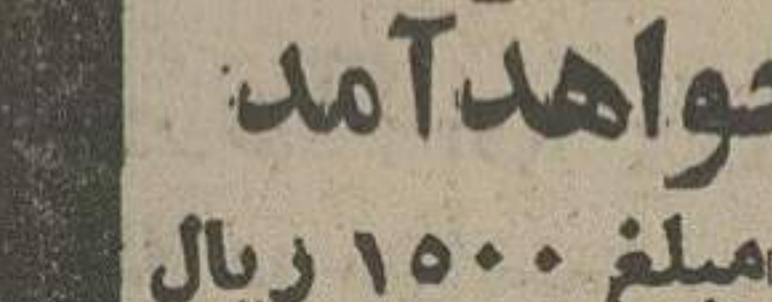 خواهد آمد
مبلغ ۱۵۰۰ ریال